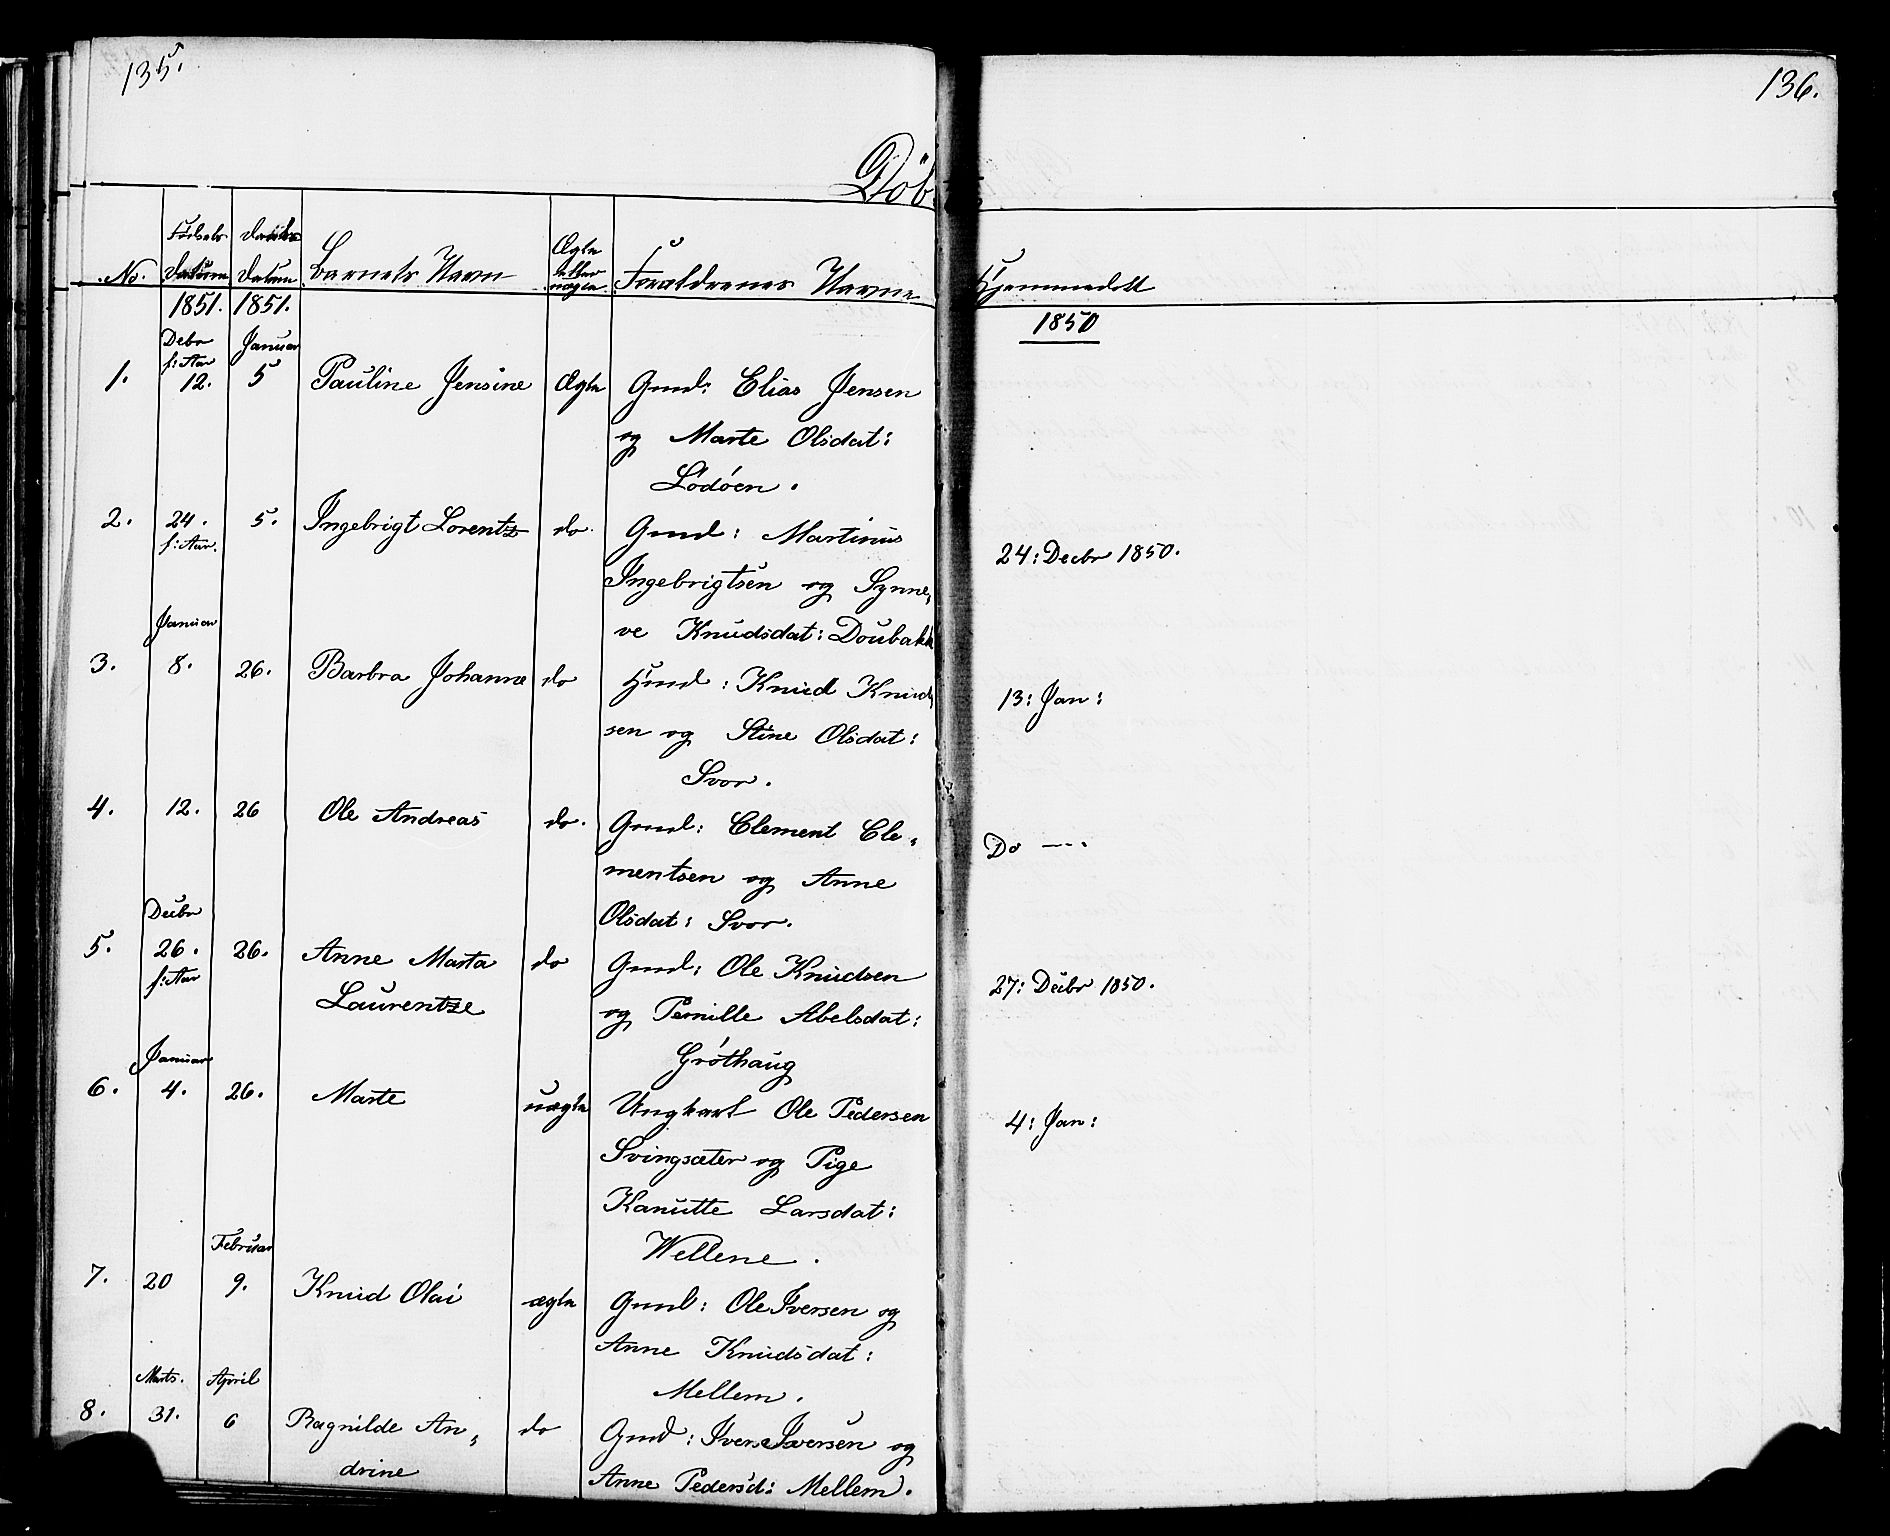 135.
Döb
No. Fødsels Datum Daabs Datum Barnets Navn Ægte eller uægte Forældrenes Navne
1851. 1851.
Debr Januar
f: Aar
1. 12. 5 Pauline Jensine Ægte Gmd: Elias Jensen
og Marte Olsdat:
Lödöen.
2. 24. 5. Ingebrigt Lorentz do. Gmd: Martinus
f: Aar.
Ingebrigtsen og Synne,
ve Knudsdat: Doubakk
Januar
3. 8. 26. Barbra Johanne do Hmd: Knud Knud,
sen og Stine Olsdat:
Svor.
4. 12. 26 Ole Andreas do. Gmd: Clement Cle,
mentsen og Anne
Olsdat: Svor.
Decbr
5. 26. 26. Anne Marta do Gmd: Ole Knudsen
f: Aar
Laurentze og Pernille Abelsdat:
Gröthaug
Januar
6. 4. 26. Marte uægte Ungkarl Ole Pedersen
Svingsæter og Pige
Kanutte Larsdat:
Wellene.
Februar
7. 20 9. Knud Olai ægte Gmd: Ole Iversen og
Anne Knudsdat:
Mellem.
Marts. April
8. 31. 6 Ragnilde An, do Gmd: Iver Iversen og
drine Anne Pedersd: Mellem.
136.
Hjemmedøbt
1850
24: Decbr 1850.
13: Jan:
Do ---
27: Decbr 1850.
4: Jan: